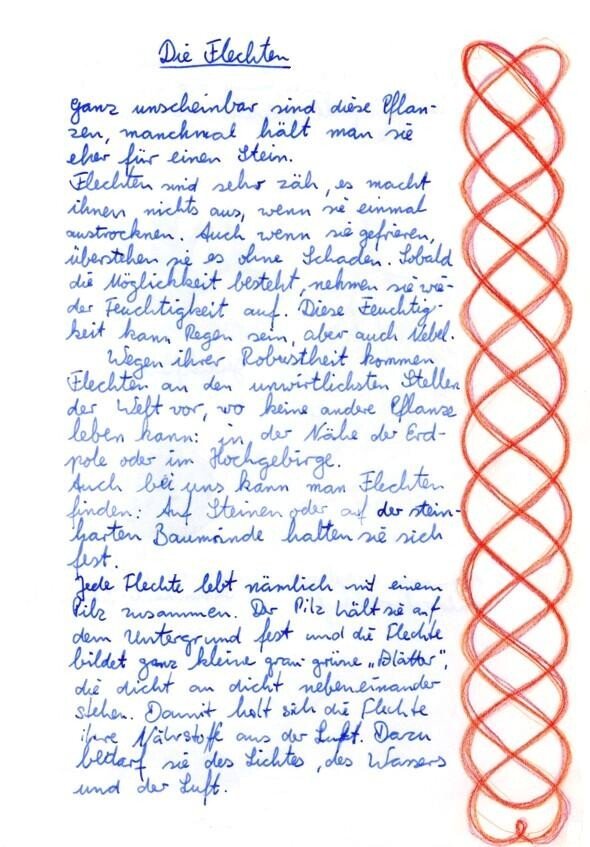 Die Flechten
Ganz unscheinbar sind diese Pflan-
zen, manchmal hält man sie
eher für einen Stein.
Flechten sind sehr zäh, es macht
ihnen nichts aus, wenn sie einmal
austrocknen. Auch wenn sie gefrieren,
überstehen sie es ohne Schaden. Sobald
die Möglichkeit besteht, nehmen sie wie-
der Feuchtigkeit auf. Diese Feuchtig-
keit kann Regen sein, aber auch Nebel.
Wegen ihrer Robustheit kommen
Flechten an den unwirtlichsten Stellen
der Welt vor, wo keine andere Pflanze
leben kann: in der Nähe der Erd-
pole oder im Hochgebirge.
Auch bei uns kann man Flechten
finden: Auf Steinen oder auf der stein-
harten Baumrinde halten sie sich
fest.
Jede Flechte lebt nämlich mit einem
Pilz zusammen. Der Pilz hält sie auf
dem Untergrund fest und die Flechte
bildet ganz kleine grau-grüne „Blätter",
die dicht an dicht nebeneinander
stehen. Damit holt sich die Flechte
ihre Nährstoffe aus der Luft. Dazu
bedarf sie des Lichtes, des Wassers
und der Luft.